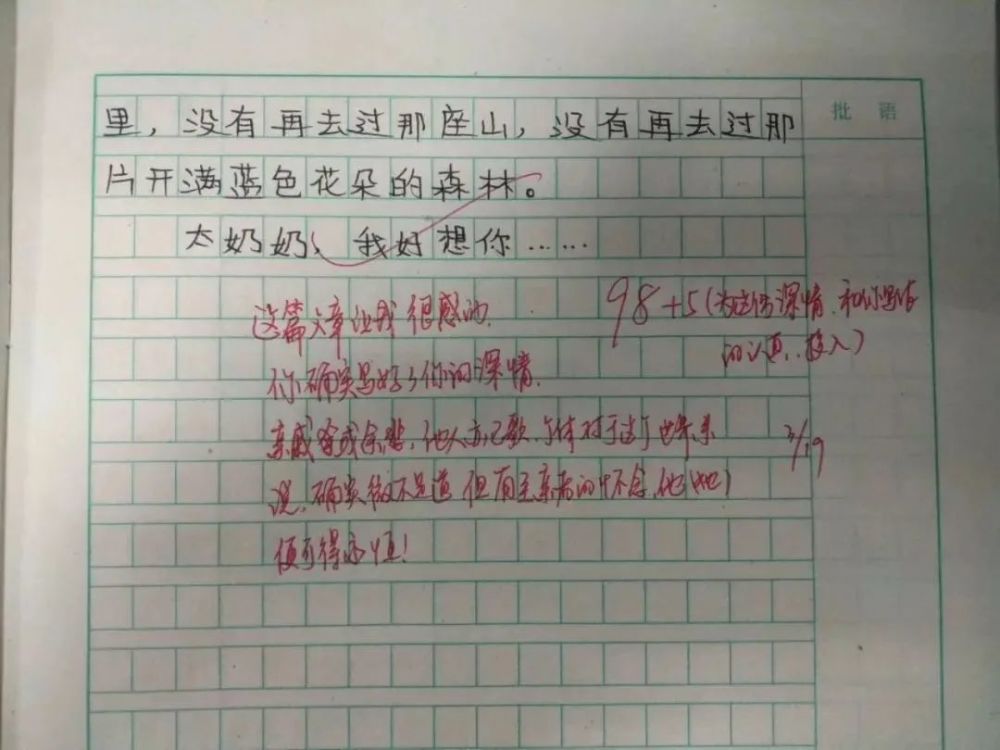 批 语
里，没有再去过那座山，没有再去过那
片开满蓝色花朵的森林。
太奶奶、我好想你……
98+5（为这份深情、和你写作
的认真、投入）
这篇文章让我很感动.
你确实写好了你的深情.
亲戚或余悲，他人亦已歌.个体对于这个世界来
说，确实微不足道 但有至亲者的怀念，他（她）
便可得永恒！
3/19